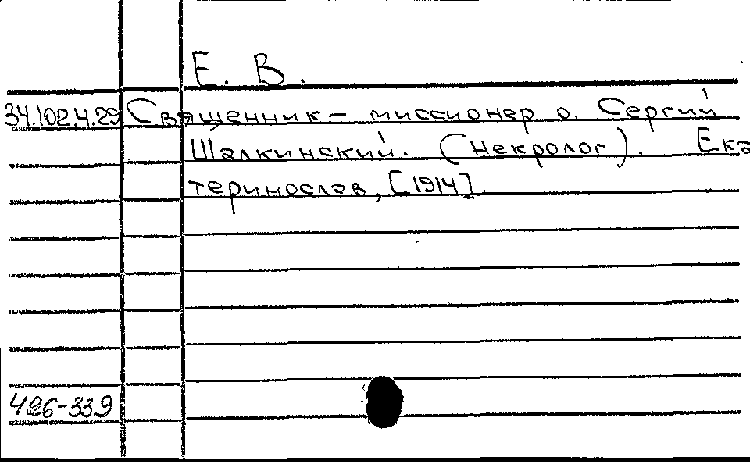 Е. В.
34.102.4.29 Священник - миссионер о. Сергий
Шалкинский. (Некролог). Ека
теринослав, [1914]
426-339